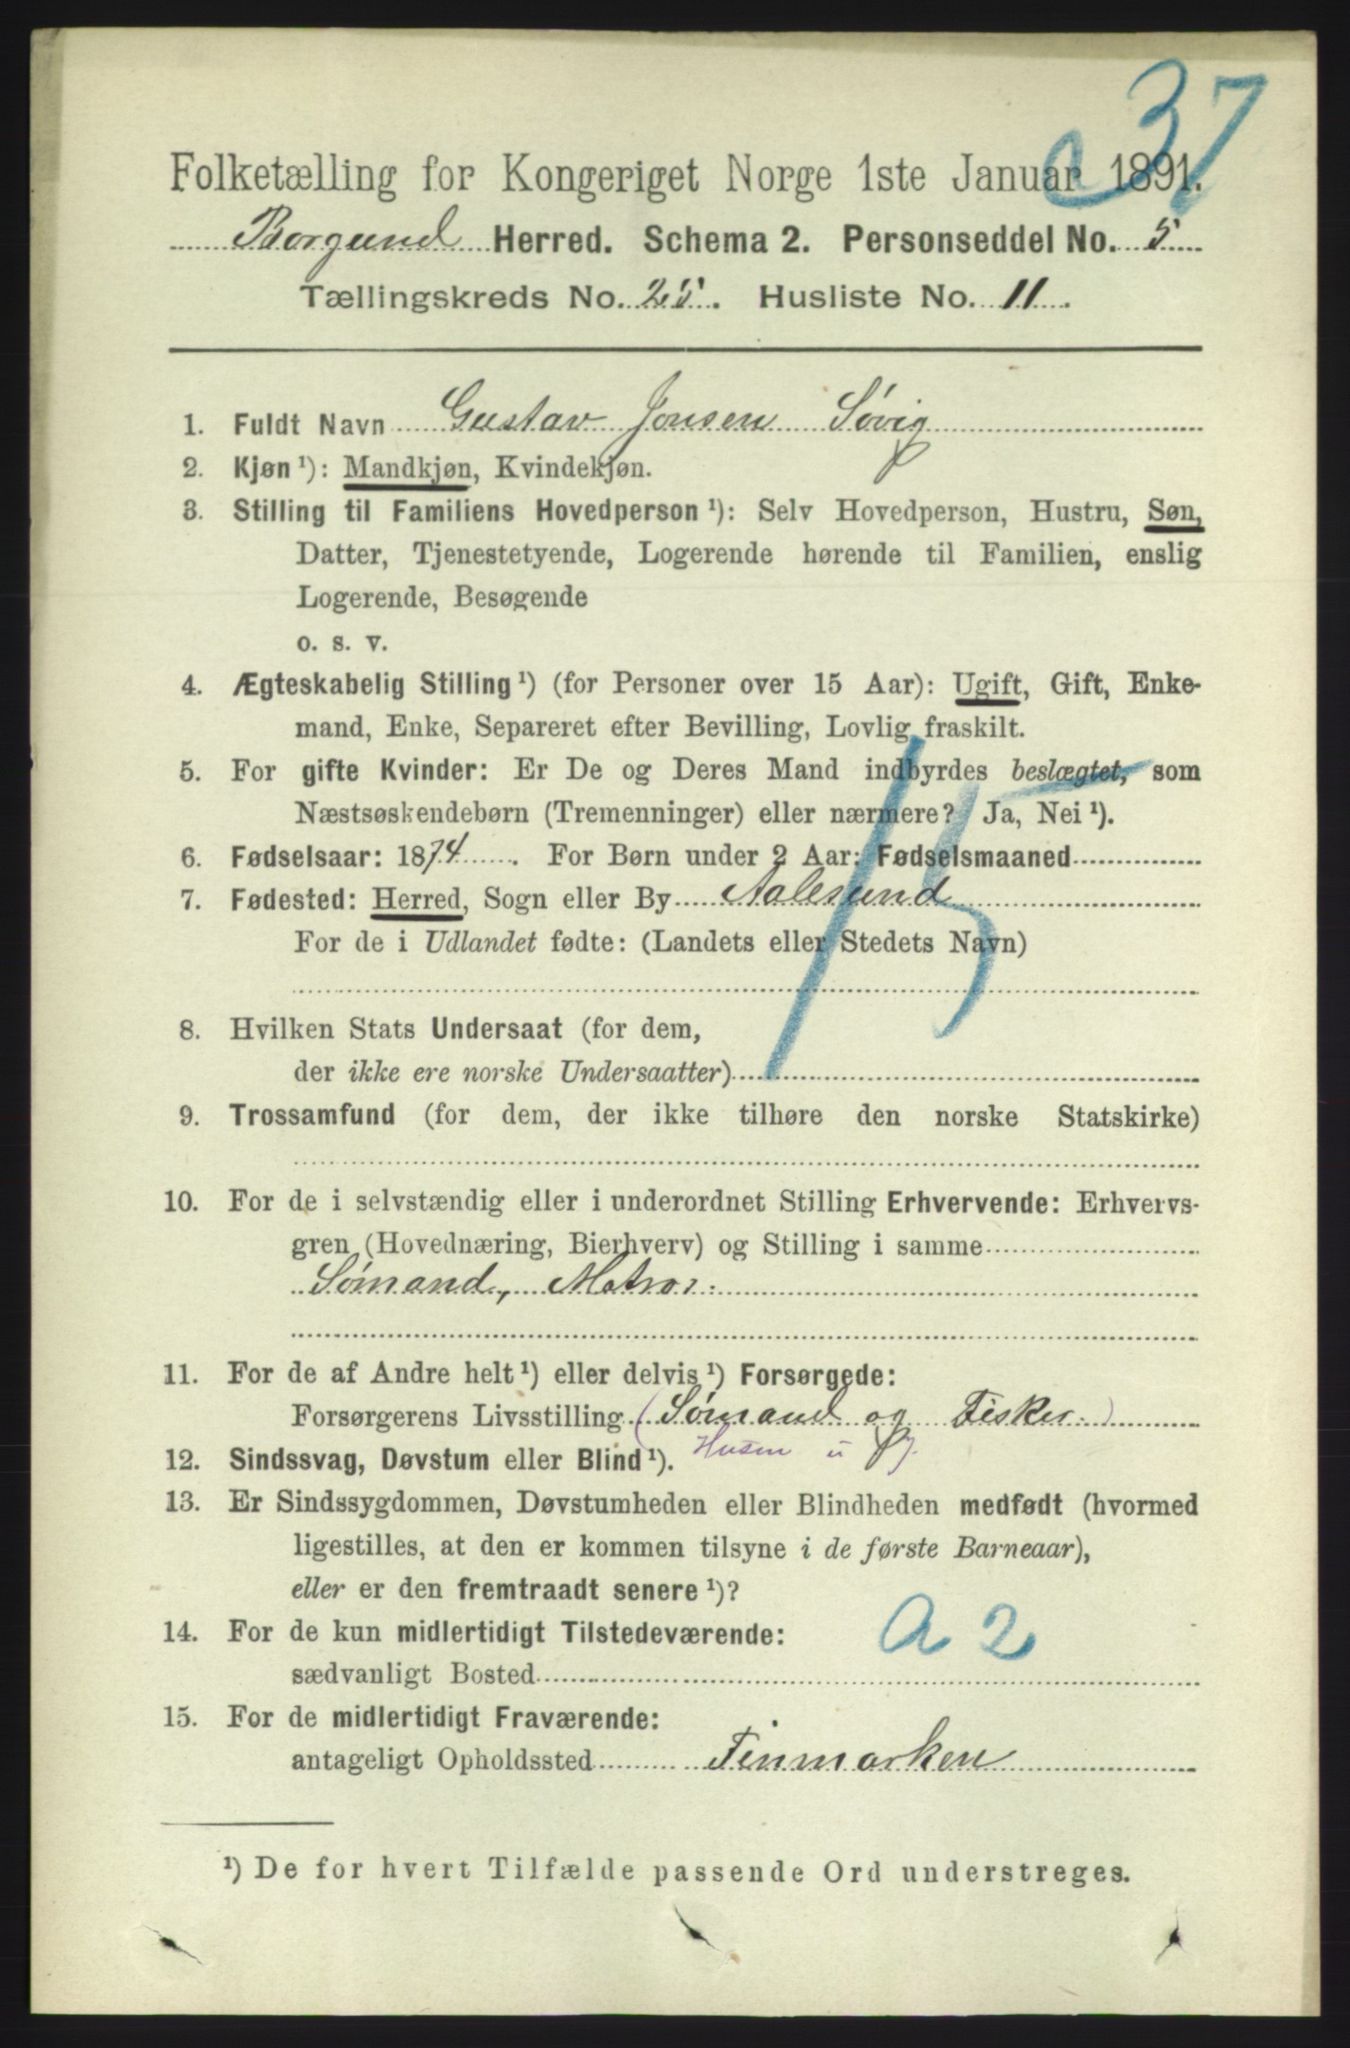 37
Folketælling for Kongeriget Norge 1ste Januar 1891.
Borgund Herred. Schema 2. Personseddel No. 5
Tællingskreds No. 25. Husliste No. 11.
1. Fuldt Navn Gustav Jonsen Søvig
2. Kjøn ¹): Mandkjøn, Kvindekjøn.
3. Stilling til Familiens Hovedperson ¹): Selv Hovedperson, Hustru, Søn,
Datter, Tjenestetyende, Logerende hørende til Familien, enslig
Logerende, Besøgende
o. s. v.
4. Ægteskabelig Stilling ¹) (for Personer over 15 Aar): Ugift, Gift, Enke-
mand, Enke, Separeret efter Bevilling, Lovlig fraskilt.
5. For gifte Kvinder: Er De og Deres Mand indbyrdes beslægtet, som
Næstsøskendebørn (Tremenninger) eller nærmere? Ja, Nei ¹).
6. Fødselsaar: 1874. For Børn under 2 Aar: Fødselsmaaned
7. Fødested: Herred, Sogn eller By Aalesund
For de i Udlandet fødte: (Landets eller Stedets Navn)
15
8. Hvilken Stats Undersaat (for dem,
der ikke ere norske Undersaatter)
9. Trossamfund (for dem, der ikke tilhøre den norske Statskirke)
10. For de i selvstændig eller i underordnet Stilling Erhvervende: Erhvervs-
gren (Hovednæring, Bierhverv) og Stilling i samme
Sømand, Matros.
11. For de af Andre helt ¹) eller delvis ¹) Forsørgede:
Forsørgerens Livsstilling (Sømand og Fisker)
12. Sindssvag, Døvstum eller Blind ¹).
13. Er Sindssygdommen, Døvstumheden eller Blindheden medfødt (hvormed
ligestilles, at den er kommen tilsyne i de første Barneaar),
eller er den fremtraadt senere ¹)?
a 2
14. For de kun midlertidigt Tilstedeværende:
sædvanligt Bosted
15. For de midlertidigt Fraværende:
antageligt Opholdssted Finmarken
¹) De for hvert Tilfælde passende Ord understreges.